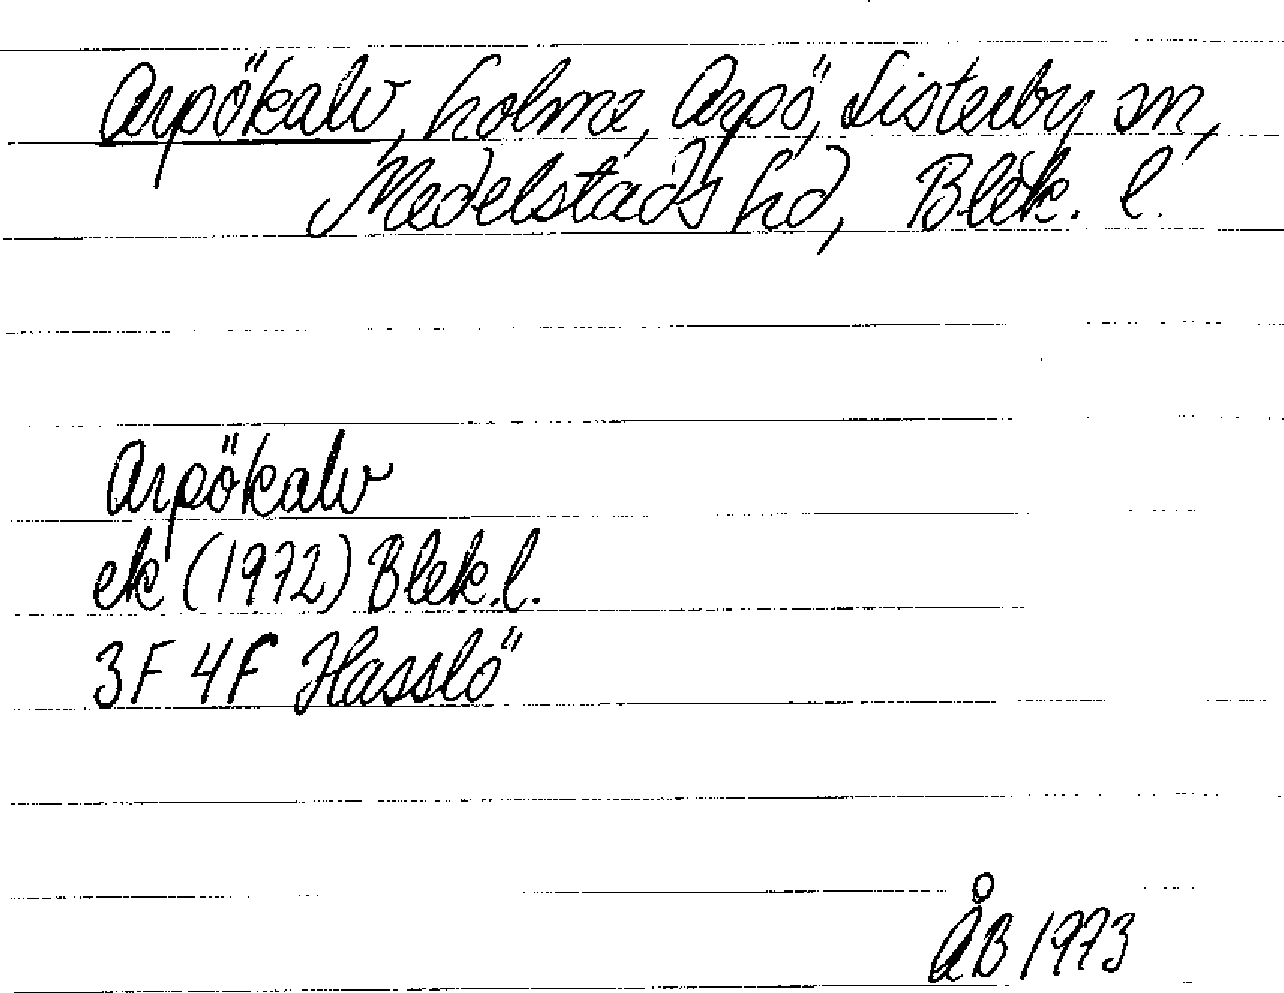 Arpökalv, holme, Arpö, Listerby sn,
Medelstads hd, Blek. l.
Arpökalv
ek (1972) Blek.l.
3F 4F Hasslö
ÅB 1973